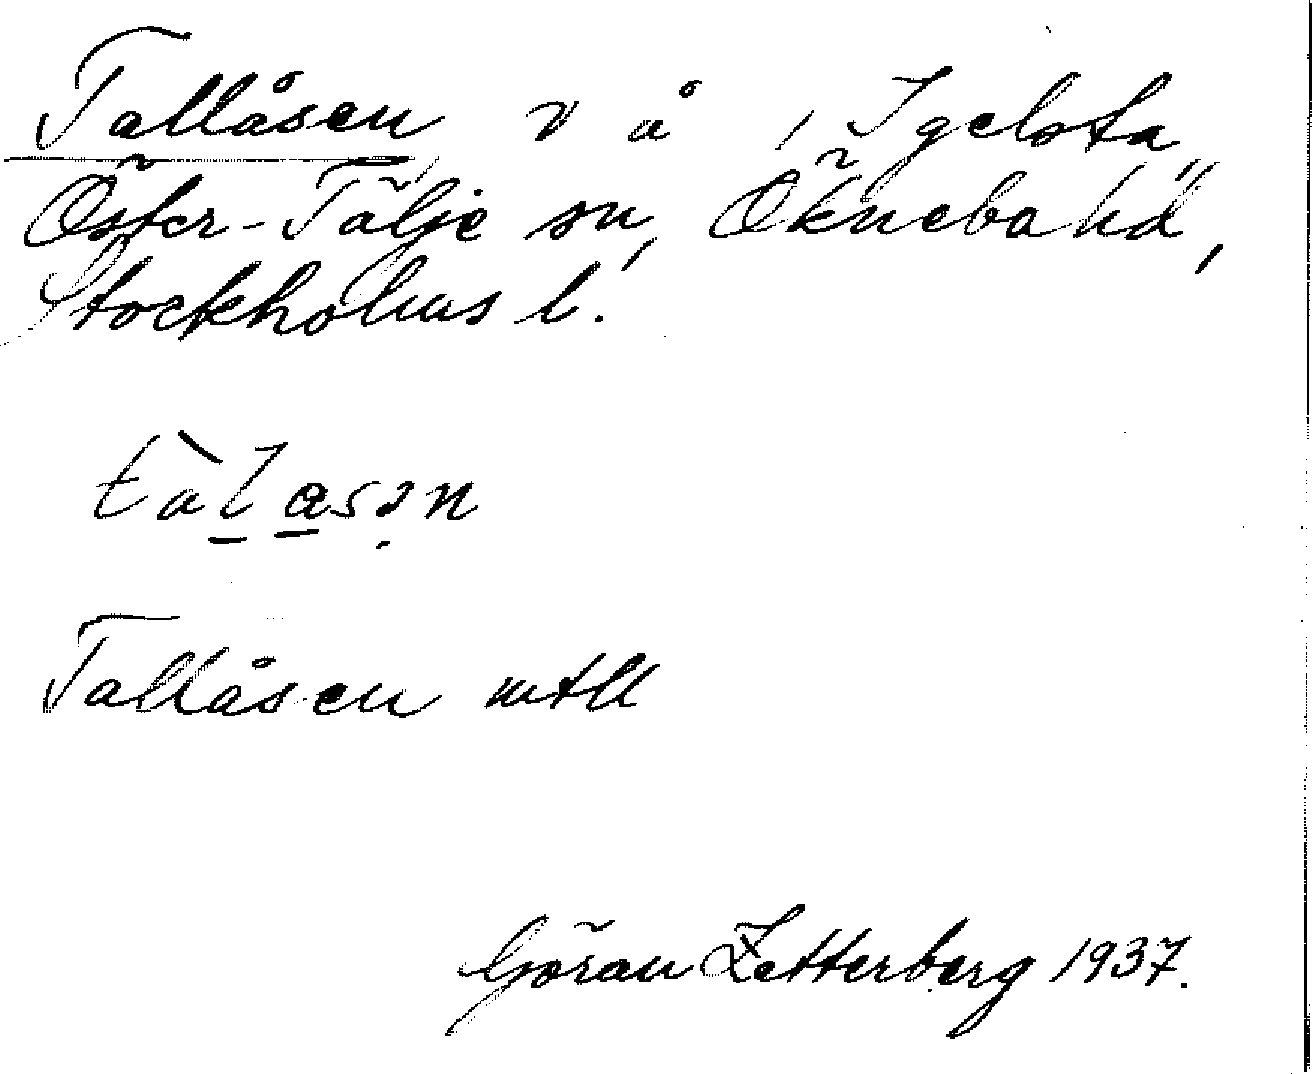 Tallåsen v å, Igelsta
Öster-Tälje sn, Öknebo hd,
Stockholms l.
tàl̠a̠sən
Tallåsen mtll
Göran Zetterberg 1937.